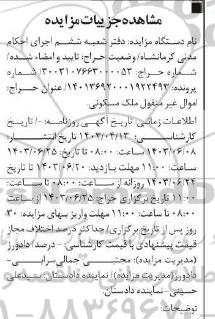 مشاهده جزییات مزایده
نام دستگاه مزایده: دفتر شعبه ششم اجرای احکام
مدنی کرمانشاه/ وضعیت حراج: تایید و امضاء شده/
شماره حراج: ۳۰۰۳۱۰۷۶۶۳۰۰۰۰۵۲/ شماره
پرونده: ۱۴۰۱۳۶۹۲۰۰۰۱۹۲۲۴۹۳/عنوان حراج:
اموال غیر منقول ملک مسکونی
اطلاعات زمانی: تاریخ آگهی روزنامه: -/ تاریخ
کارشناسی: ۱۴۰۳/۰۴/۱۳ تاریخ انتشار:
۱۴۰۳/۰۶/۰۸ ساعت: ۰۸:۰۰ تا ۱۴۰۳/۰۶/۲۵
ساعت: ۱۱:۰۰ مهلت بازدید: ۱۴۰۳/۰۶/۲۰ تا
۱۴۰۳/۰۶/۲۴ روزانه از ساعت: ۰۸:۰۰ تا ساعت:
۱۱:۰۰ تاریخ برگزاری حراج: ۱۴۰۳/۰۶/۲۵ از ساعت
۰۸:۰۰ تا ساعت: ۱۱:۰۰ مهلت واریز بهای مزایده: ۳۰
روز پس از تاریخ برگزاری/ حداکثر درصد اختلاف مجاز
قیمت پیشنهادی با قیمت کارشناسی: - درصد/ دادورز
(مدیریت مزایده): مجتبی جمالی‌سرابی-
دادورز(مدیریت مزایده)/ نماینده دادستان: سیدعلی
حسینی- نماینده دادستان.
توضیحات: